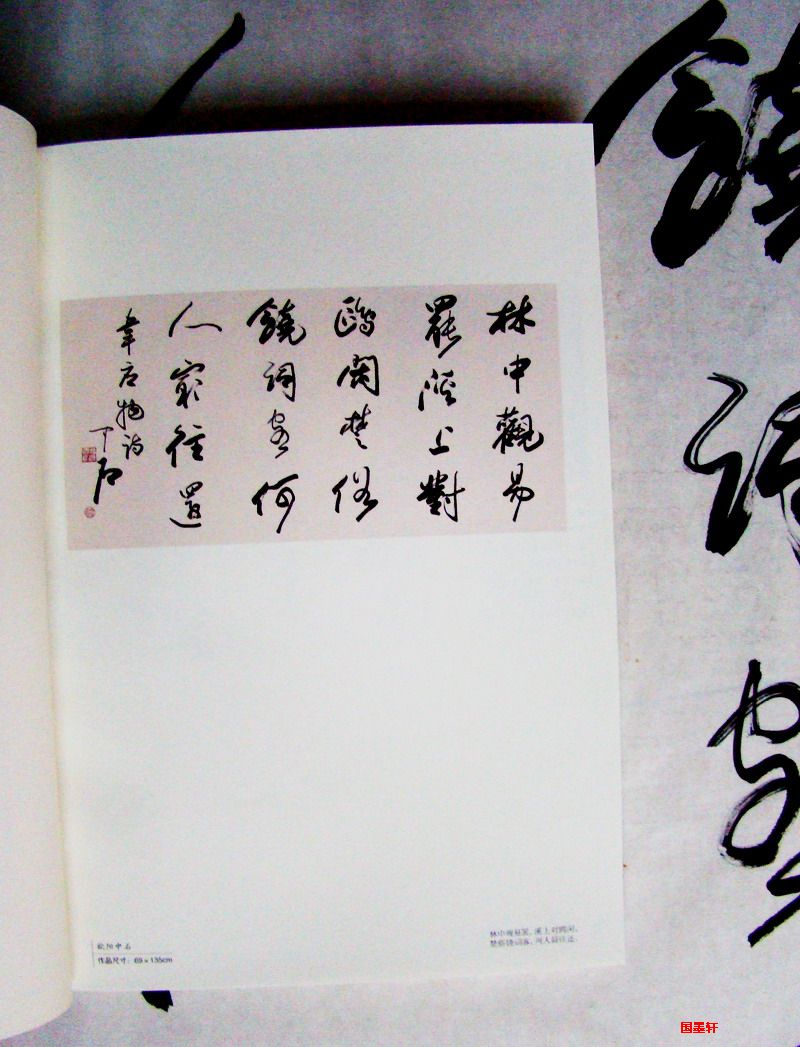 林中觀易
罷溪上對
鷗閑楚俗
饒詞客何
人最往還
韋应物诗
中石
欧阳中石
作品尺寸：69×135cm
林中观易罢，溪上对鸥闲。
楚俗饶词客，何人最往还。
饒詞客
国墨轩